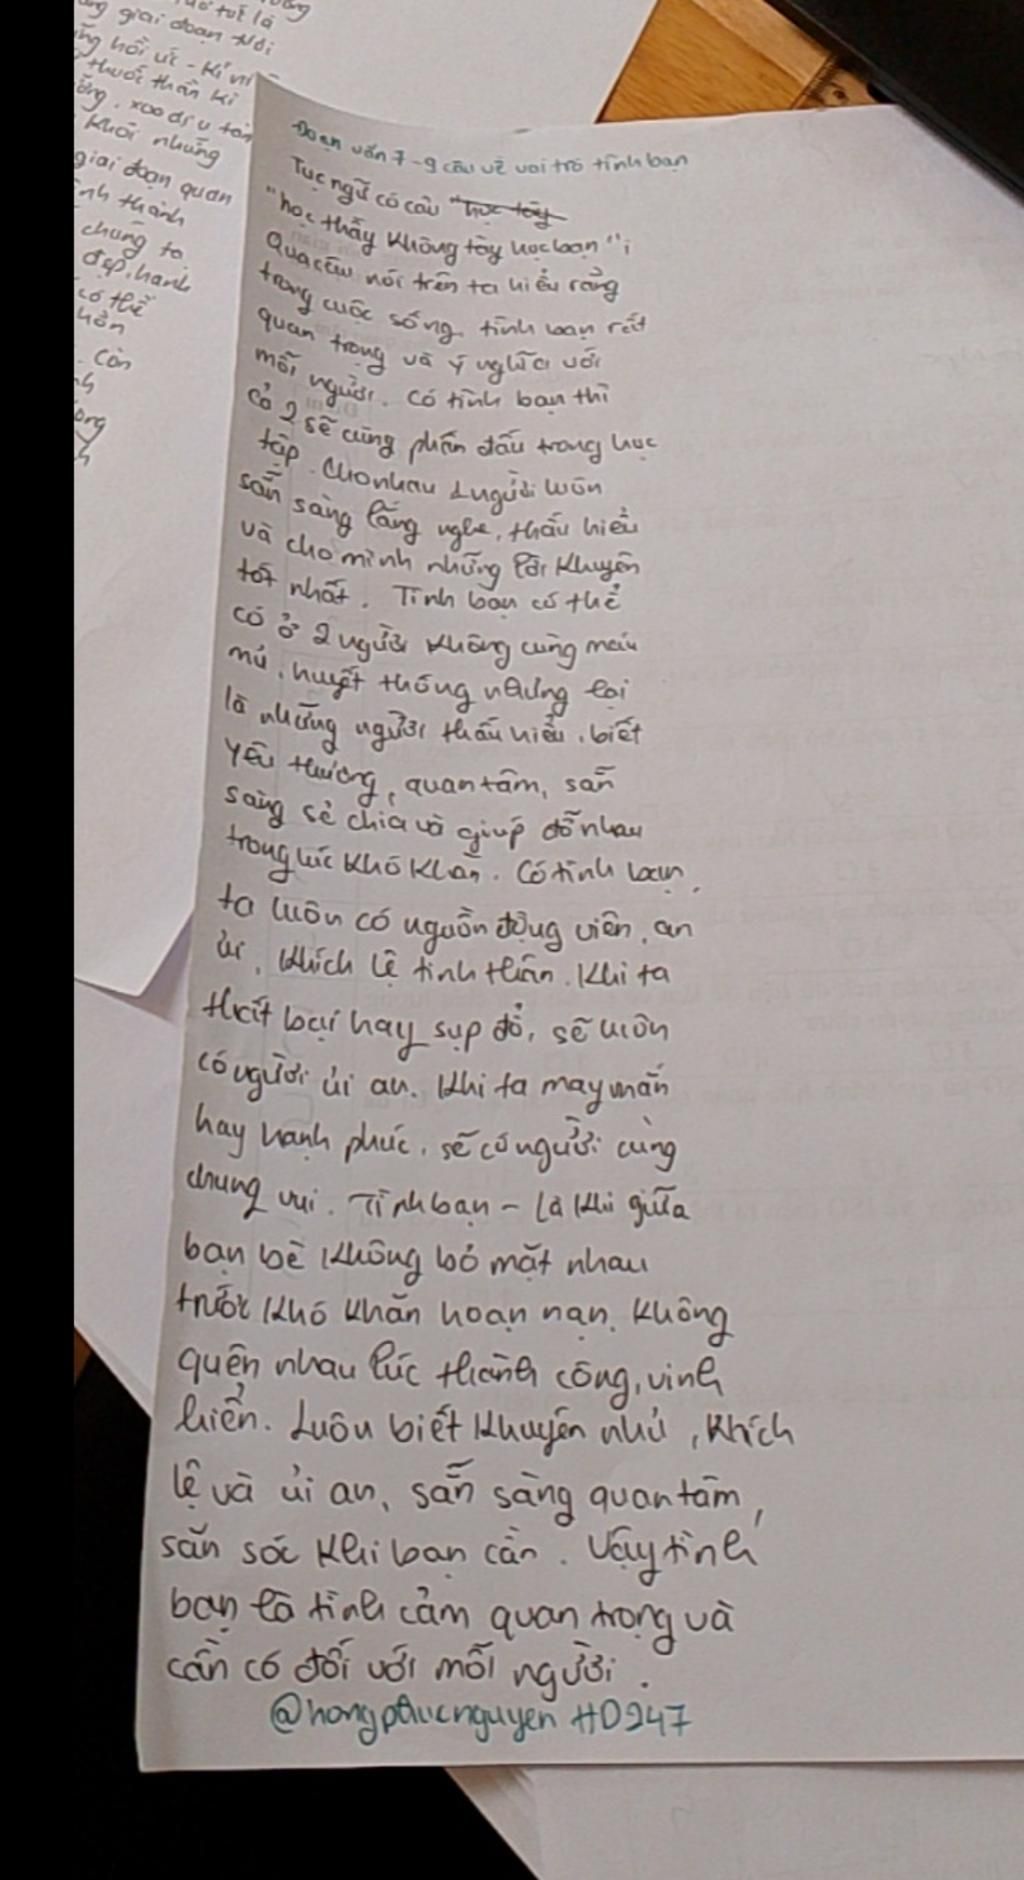 ng giai đoạn
hồi ức - kỉ
thuốc thần kì
xoa dịu
khỏi những
giai đoạn quan
thành
chúng ta
đẹp, hạnh
có thể
Còn
Đoạn văn 7-9 câu về vai trò tình bạn
Tục ngữ có câu "học tày
"học thầy không tày học bạn";
Qua câu nói trên ta hiểu rằng
trong cuộc sống, tình bạn rất
quan trọng và ý nghĩa với
mỗi người. Có tình bạn thì
cả 2 sẽ cùng phấn đấu trong học
tập. Cho nhau 1 người luôn
sẵn sàng lắng nghe, thấu hiểu
và cho mình những lời khuyên
tốt nhất. Tình bạn có thể
có ở 2 người không cùng máu
mủ, huyết thống nhưng lại
là những người thấu hiểu, biết
yêu thương, quan tâm, sẵn
sàng sẻ chia và giúp đỡ nhau
trong lúc khó khăn. Có tình bạn,
ta luôn có nguồn động viên, an
ủi, khích lệ tinh thần. Khi ta
thất bại hay sụp đổ, sẽ luôn
có người ủi an. Khi ta may mắn
hay hạnh phúc, sẽ có người cùng
chung vui. Tình bạn - là khi giữa
bạn bè không bỏ mặt nhau
trước khó khăn hoạn nạn, không
quên nhau lúc thành công, vinh
hiển. Luôn biết khuyên nhủ, khích
lệ và ủi an, sẵn sàng quan tâm,
săn sóc khi bạn cần. Vậy tình
bạn là tình cảm quan trọng và
cần có đối với mỗi người.
@hongphucnguyen HD247